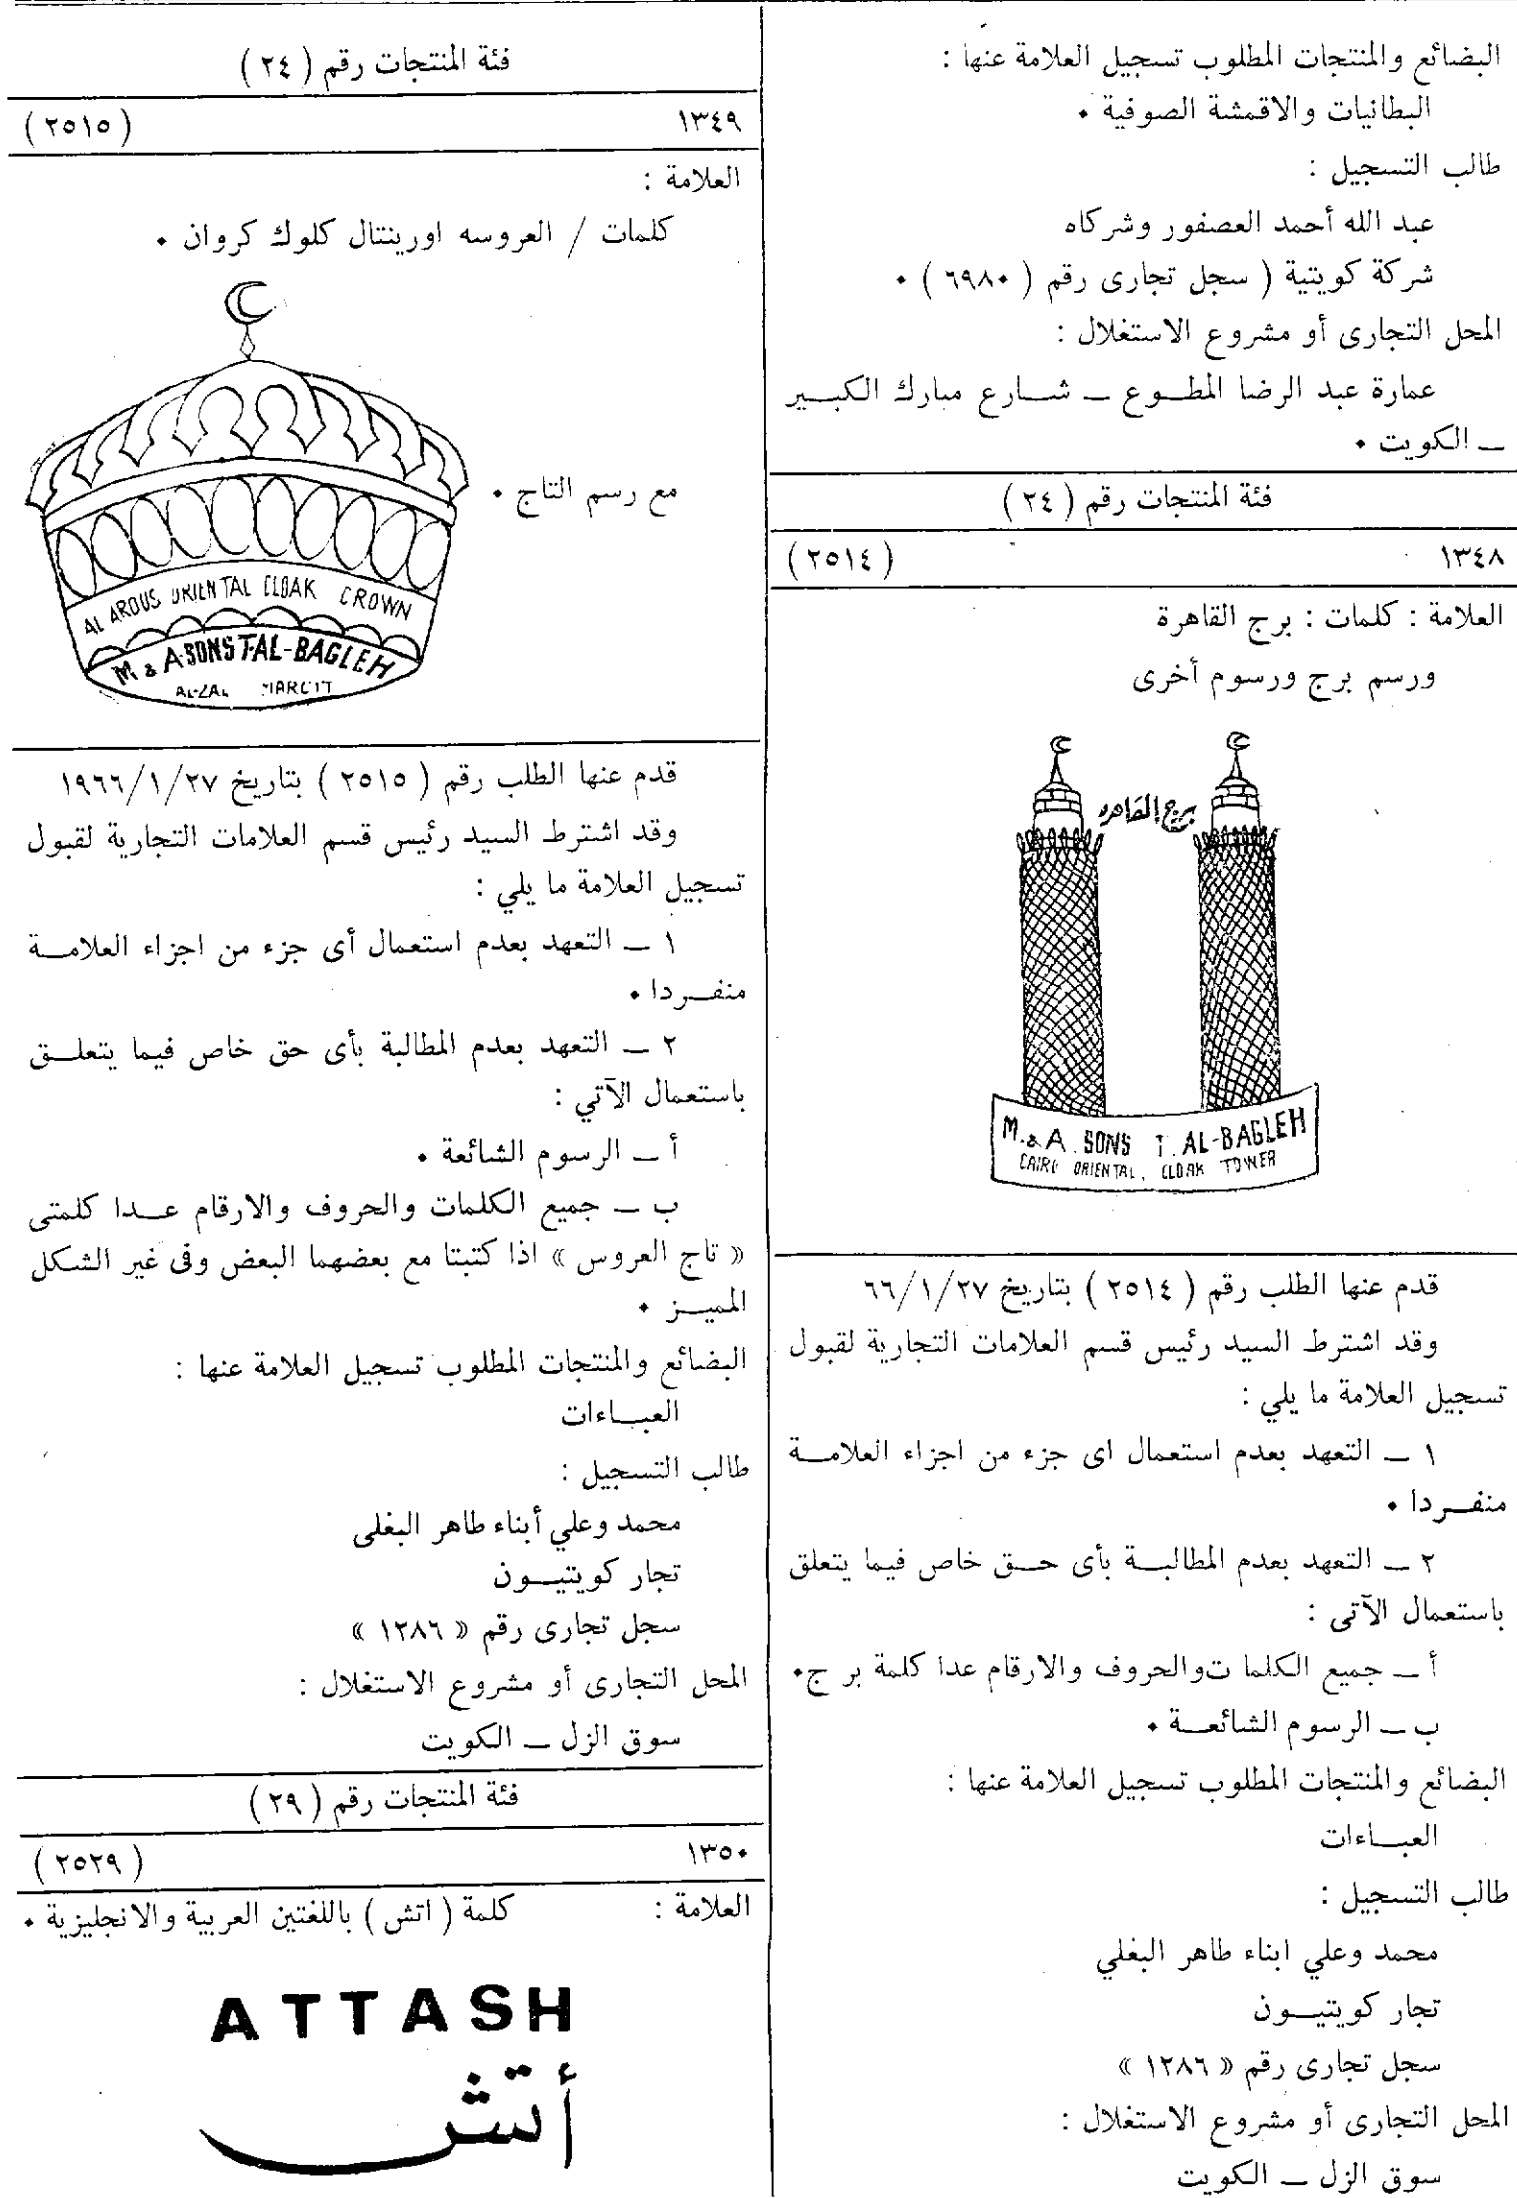 البضائع والمنتجات المطلوب تسجيل العلامة عنها :
البطانيات والاقمشة الصوفية .
طالب التسجيل :
عبد الله أحمد العصفور وشركاه
شركة كويتية ( سجل تجارى رقم ( ٦٩٨٠ ) .
المحل التجارى أو مشروع الاستغلال :
عمارة عبد الرضا المطوع ــ شارع مبارك الكبير
ــ الكويت .
فئة المنتجات رقم ( ٢٤ )
١٣٤٨ ( ٢٥١٤ )
العلامة : كلمات : برج القاهرة
ورسم برج ورسوم أخرى
برج القاهره
M. & A. SONS T. AL-BAGLEH
CAIRO ORIENTAL. CLOAK TOWER
قدم عنها الطلب رقم ( ٢٥١٤ ) بتاريخ ٦٦/١/٢٧
وقد اشترط السيد رئيس قسم العلامات التجارية لقبول
تسجيل العلامة ما يلي :
١ ــ التعهد بعدم استعمال اى جزء من اجزاء العلامة
منفردا .
٢ ــ التعهد بعدم المطالبة بأى حق خاص فيما يتعلق
باستعمال الآتى :
أ ــ جميع الكلما توالحروف والارقام عدا كلمة بر ج.
ب ــ الرسوم الشائعة .
البضائع والمنتجات المطلوب تسجيل العلامة عنها :
العباءات
طالب التسجيل :
محمد وعلي ابناء طاهر البغلي
تجار كويتيون
سجل تجارى رقم « ١٢٨٦ »
المحل التجارى أو مشروع الاستغلال :
سوق الزل ــ الكويت
فئة المنتجات رقم ( ٢٤ )
١٣٤٩ ( ٢٥١٥ )
العلامة :
كلمات / العروسه اورينتال كلوك كروان .
مع رسم التاج .
AL AROUS ORIENTAL CLOAK CROWN
M & A SONS T-AL-BAGLEH
AL-ZAL
قدم عنها الطلب رقم ( ٢٥١٥ ) بتاريخ ١٩٦٦/١/٢٧
وقد اشترط السيد رئيس قسم العلامات التجارية لقبول
تسجيل العلامة ما يلي :
١ ــ التعهد بعدم استعمال أى جزء من اجزاء العلامة
منفردا .
٢ ــ التعهد بعدم المطالبة بأى حق خاص فيما يتعلق
باستعمال الآتي :
أ ــ الرسوم الشائعة .
ب ــ جميع الكلمات والحروف والارقام عدا كلمتى
« تاج العروس » اذا كتبتا مع بعضهما البعض وفى غير الشكل
المميز .
البضائع والمنتجات المطلوب تسجيل العلامة عنها :
العباءات
طالب التسجيل :
محمد وعلي أبناء طاهر البغلى
تجار كويتيون
سجل تجارى رقم « ١٢٨٦ »
المحل التجارى أو مشروع الاستغلال :
سوق الزل ــ الكويت
فئة المنتجات رقم ( ٢٩ )
١٣٥٠ ( ٢٥٢٩ )
العلامة : كلمة ( اتش ) باللغتين العربية والانجليزية .
ATTASH
أتش